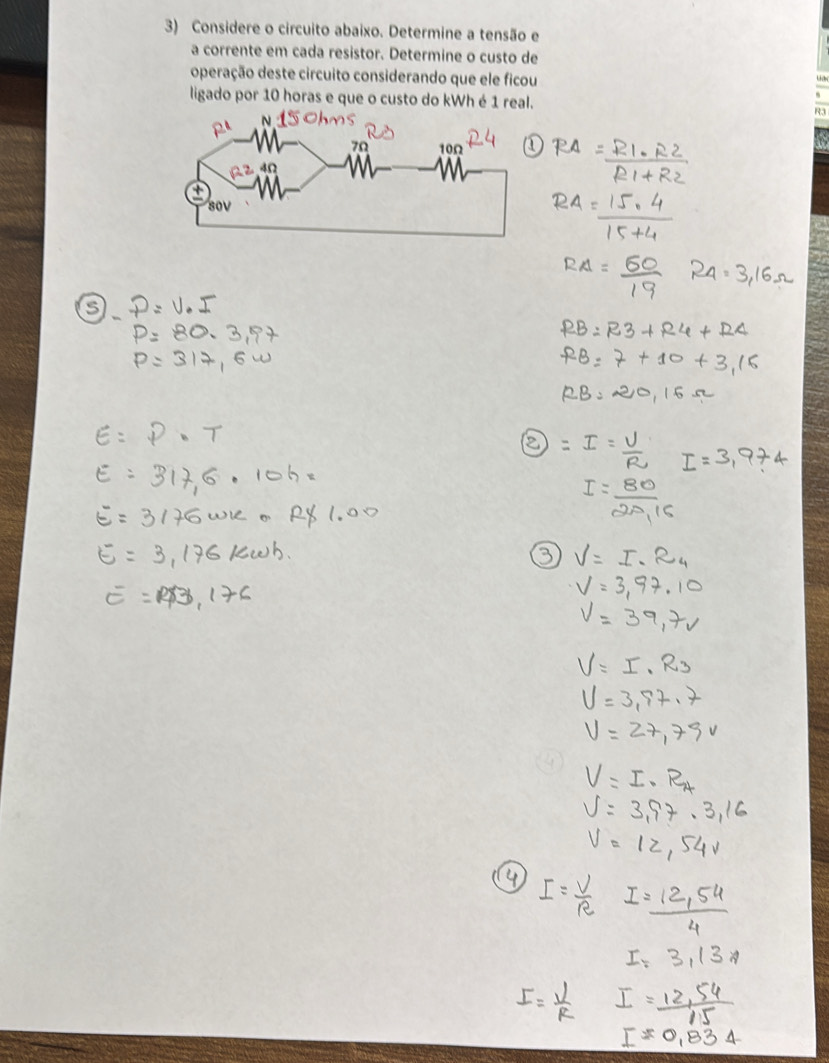 3) Considere o circuito abaixo. Determine a tensão e
a corrente em cada resistor. Determine o custo de
operação deste circuito considerando que ele ficou
ligado por 10 horas e que o custo do kWh é 1 real.
R1 N 15 Ohms R3 7Ω 10Ω R4
R2 4Ω
80V
① RA = R1.R2
R1+R2
RA = 15.4
15+4
RA = 60
19
RA = 3,16Ω
RB = R3 + R4 + RA
RB = 7 + 10 + 3,16
RB = 20,16 Ω
② = I = V
R
I = 3,97A
I = 80
20,16
③ V = I. R4
V = 3,97.10
V = 39,7V
V = I. R3
V = 3,97.7
V = 27,79V
V = I. RA
V = 3,97.3,16
V = 12,54V
④ I = V
R
I = 12,54
4
I = 3,13A
I = V
R
I = 12,54
15
I = 0,83A
⑤- P = V.I
P = 80. 3,97
P = 317,6W
E = P.T
E = 317,6. 10h =
E = 3176 WK . R$ 1.00
E = 3,176 Kwh.
E = R$3,176
R3